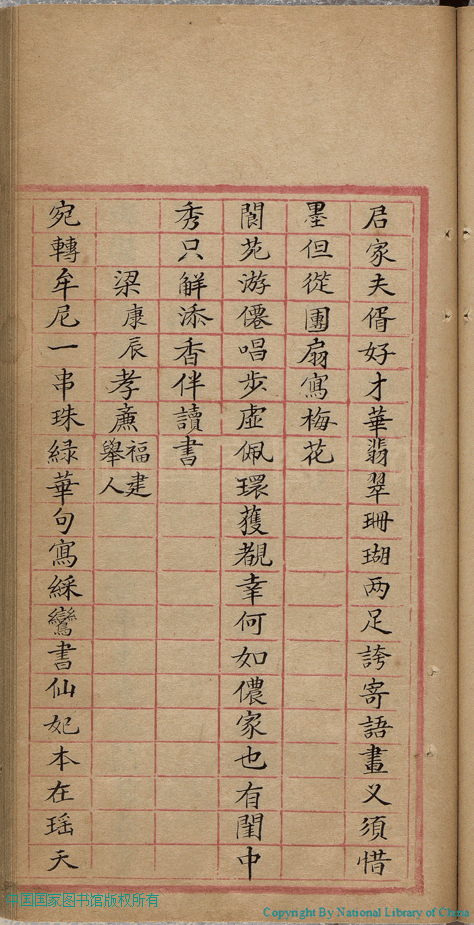 君家夫倄好才華翡翠珊瑚两足誇寄語畫义須惜
墨但從團扇寫梅花
閬苑游僊唱步虛佩環獲覩幸何如儂家也有閨中
秀只解添香伴讀書
梁康辰孝㢘福建舉人
宛轉牟尼一串珠緑華句寫綵鸞書仙妃本在瑶天
中国国家图书馆版权所有
Copyright By National Library of China